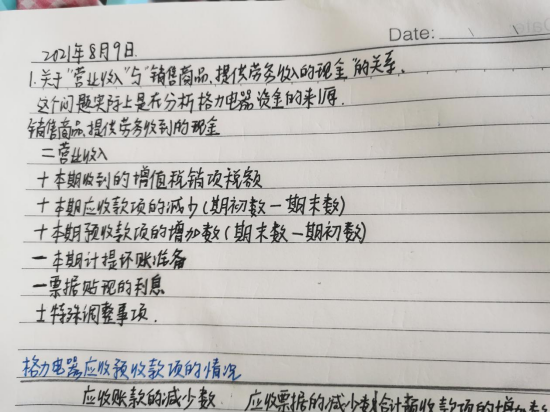 Date:
2021年8月9日.
1.关于"营业收入"与"销售商品,提供劳务收入的现金"的关系.
这个问题实际上是在分析格力电器资金的来源.
销售商品,提供劳务收到的现金
=营业收入
+本期收到的增值税销项税额
+本期应收款项的减少(期初数-期末数)
+本期预收款项的增加数(期末数-期初数)
-本期计提坏账准备
-票据贴现的利息
±特殊调整事项.
格力电器应收预收款项的情况
应收账款的减少数 应收票据的减少数 合计预收款项的增加数